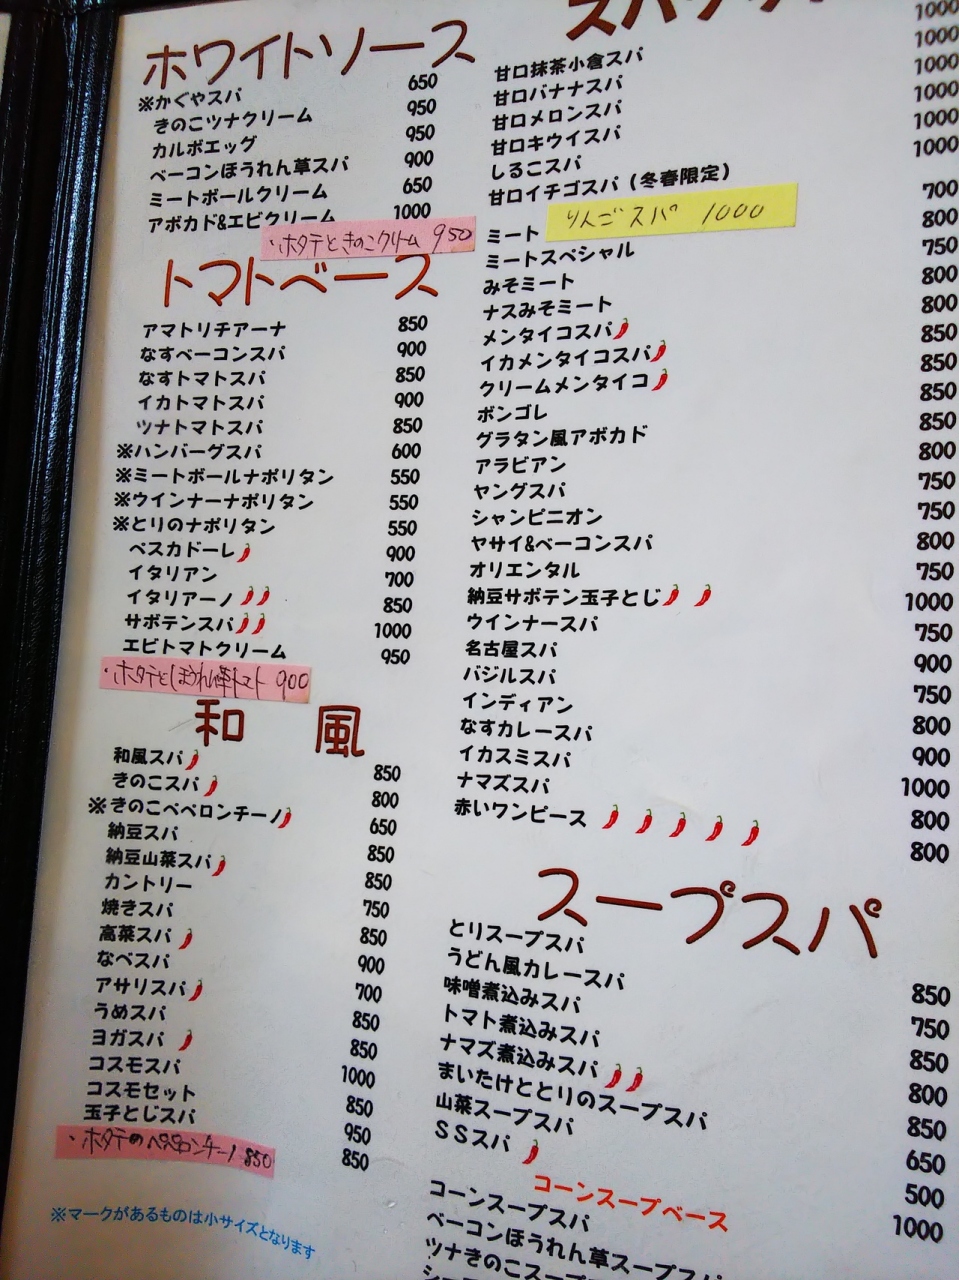 ホワイトソース
※かぐやスパ 650
きのこツナクリーム 950
カルボエッグ 950
ベーコンほうれん草スパ 900
ミートボールクリーム 650
アボカド&エビクリーム 1000
・ホタテときのこクリーム 950
トマトベース
アマトリチアーナ 850
なすベーコンスパ 900
なすトマトスパ 850
イカトマトスパ 900
ツナトマトスパ 850
※ハンバーグスパ 600
※ミートボールナポリタン 550
※ウインナーナポリタン 550
※とりのナポリタン 550
ペスカドーレ 900
イタリアン 700
イタリアーノ 850
サボテンスパ 1000
エビトマトクリーム 950
・ホタテとほうれん草トマト 900
和 風
和風スパ 850
きのこスパ 800
※きのこペペロンチーノ 650
納豆スパ 850
納豆山菜スパ 850
カントリー 750
焼きスパ 850
高菜スパ 900
なべスパ 700
アサリスパ 850
うめスパ 850
ヨガスパ 1000
コスモスパ 850
コスモセット 950
玉子とじスパ 850
・ホタテのペペロンチーノ 850
※マークがあるものは小サイズとなります
甘口抹茶小倉スパ 1000
甘口バナナスパ 1000
甘口メロンスパ 1000
甘口キウイスパ 1000
しるこスパ 1000
甘口イチゴスパ(冬春限定) 1000
りんごスパ 1000
ミート 700
ミートスペシャル 800
みそミート 750
ナスみそミート 800
メンタイコスパ 800
イカメンタイコスパ 850
クリームメンタイコ 850
ボンゴレ 850
グラタン風アボカド 850
アラビアン 800
ヤングスパ 750
シャンピニオン 750
ヤサイ&ベーコンスパ 800
オリエンタル 750
納豆サボテン玉子とじ 1000
ウインナースパ 750
名古屋スパ 900
バジルスパ 750
インディアン 800
なすカレースパ 900
イカスミスパ 1000
ナマズスパ 800
赤いワンピース 800
スープスパ
とりスープスパ 850
うどん風カレースパ 750
味噌煮込みスパ 850
トマト煮込みスパ 800
ナマズ煮込みスパ 850
まいたけととりのスープスパ 650
山菜スープスパ 500
SSスパ 1000
コーンスープベース
コーンスープスパ
ベーコンほうれん草スープスパ
ツナきのこスープ